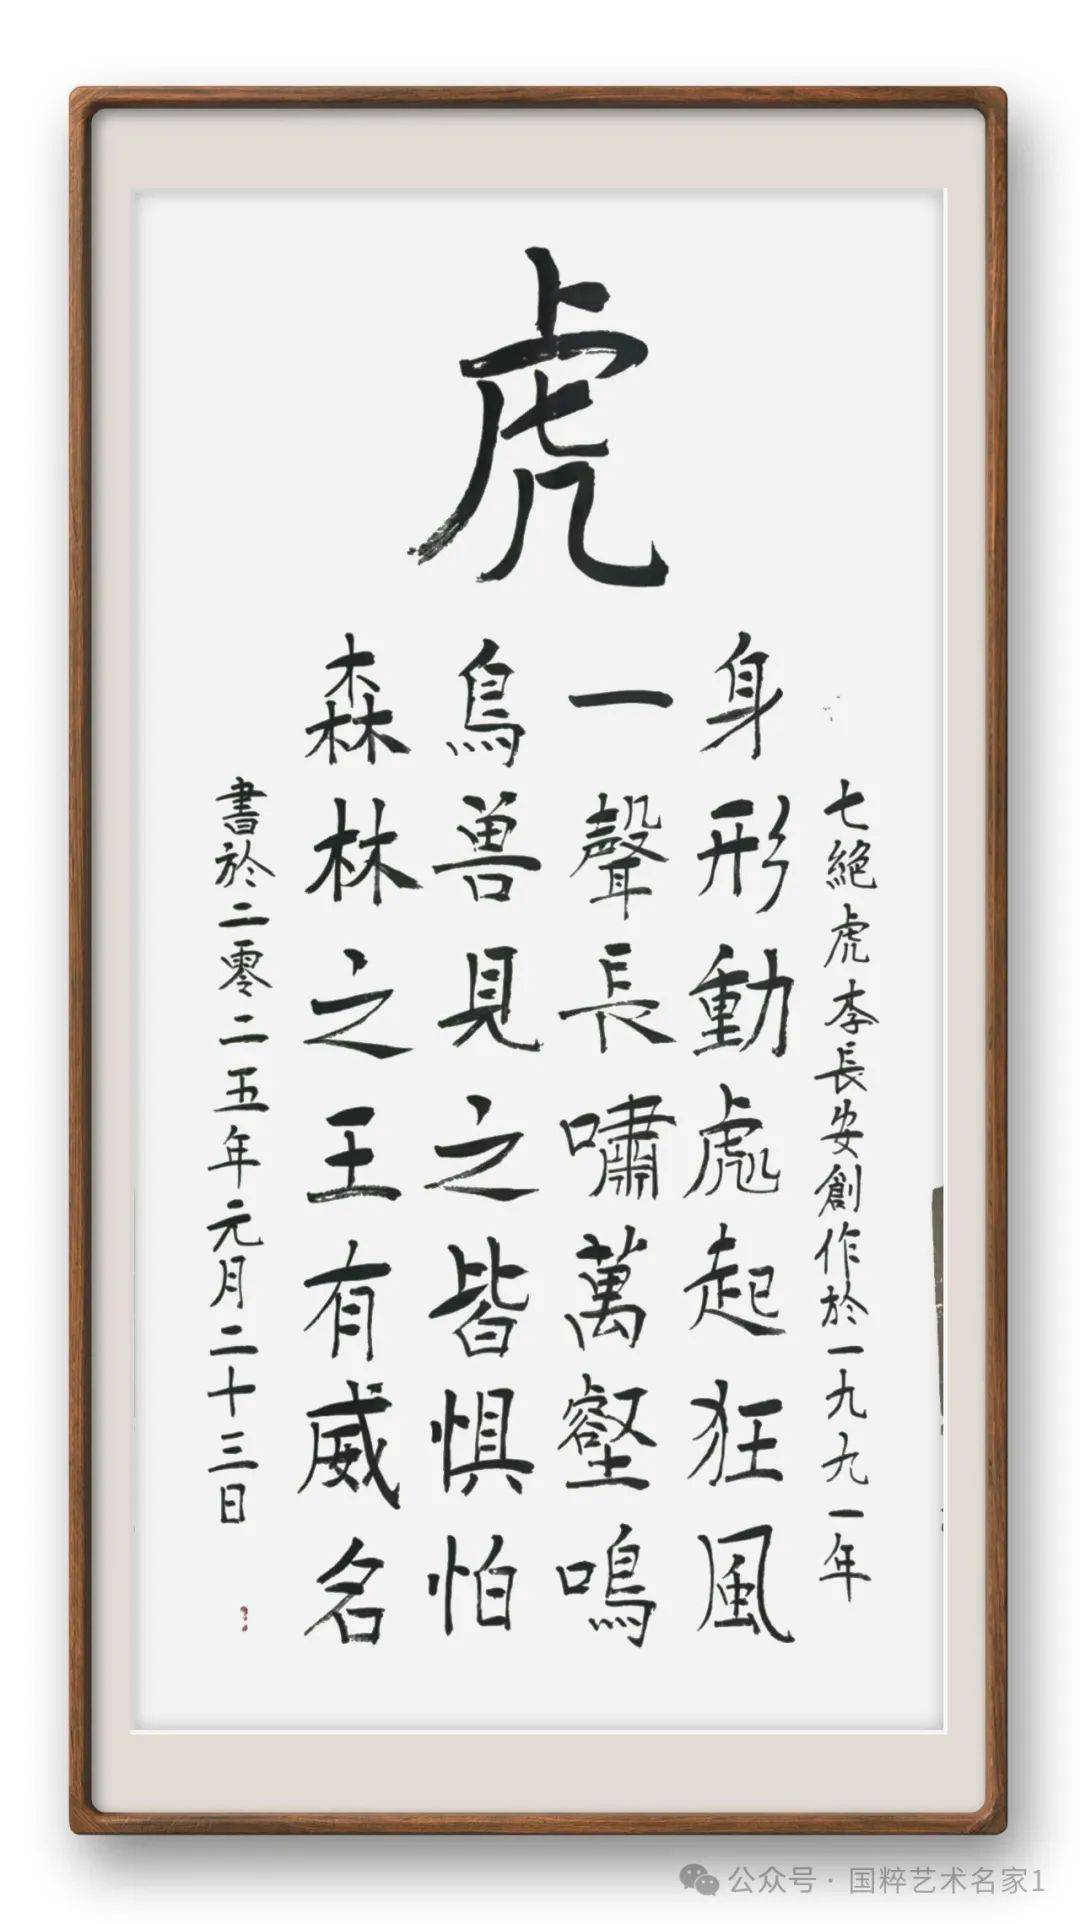 虎
七絕虎李長安創作於一九九一年
身形動處起狂風
一聲長嘯萬壑鳴
鳥兽見之皆惧怕
森林之王有威名
書於二零二五年元月二十三日
公众号 · 国粹艺术名家1